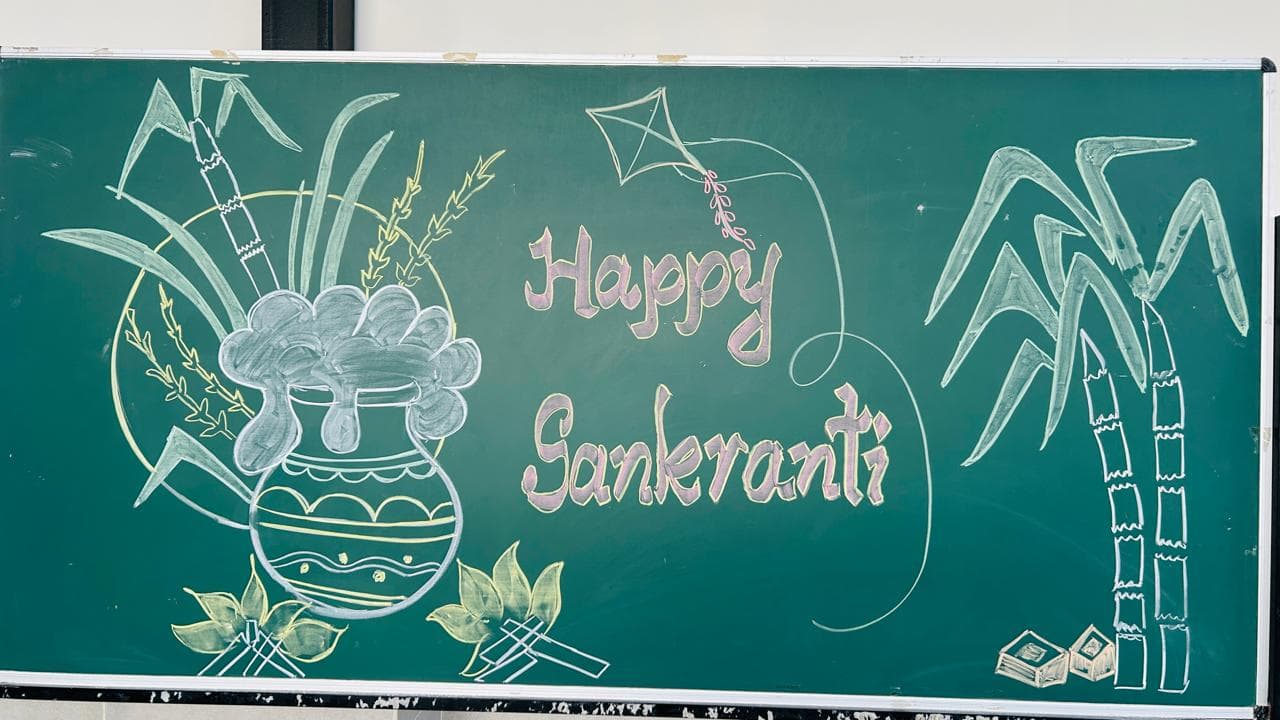 Happy
Sankranti